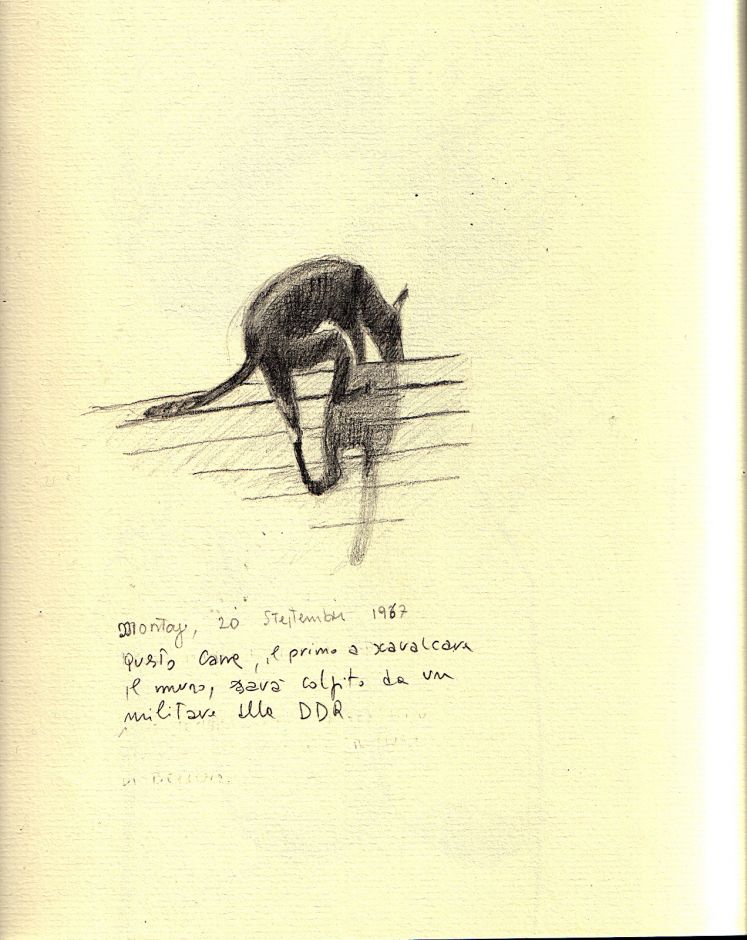 Montag, 20 September 1967
Questo cane, il primo a scavalcare
il muro, sarà colpito da un
militare della DDR.